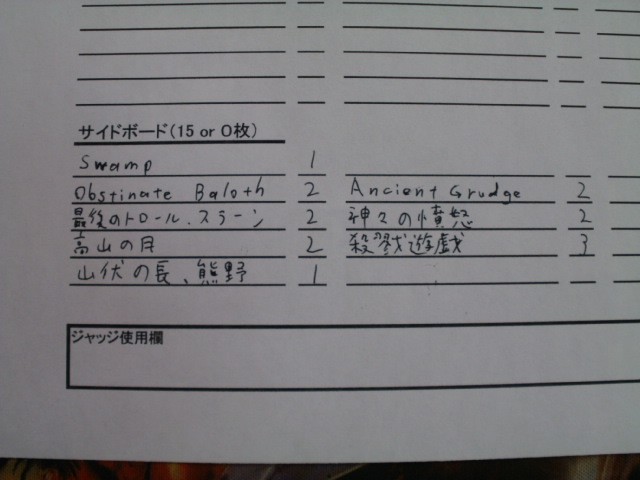 サイドボード(15 or 0枚)
Swamp 1
Obstinate Baloth 2
最後のトロール、スラーン 2
高山の月 2
山伏の長、熊野 1
Ancient Grudge 2
神々の憤怒 2
殺戮遊戯 3
ジャッジ使用欄